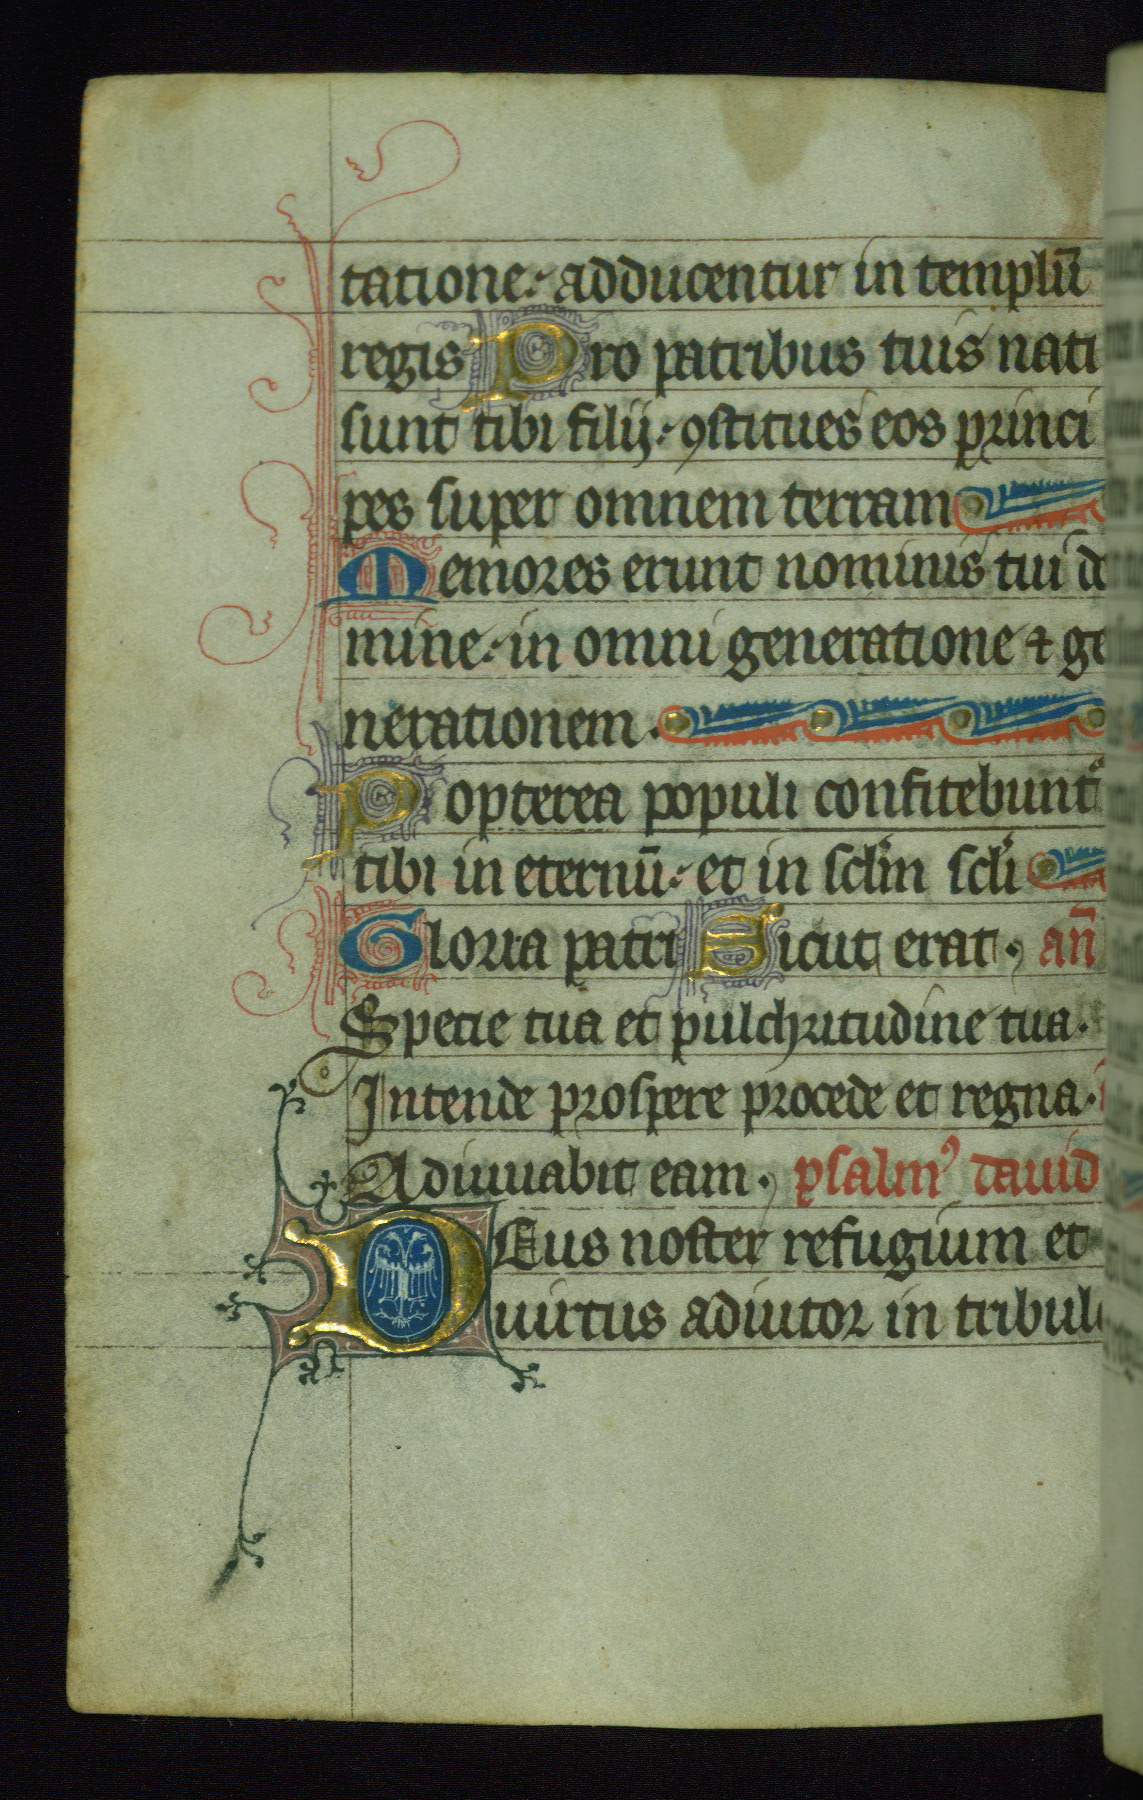 tatione. adducentur in templū
regis Pro patribus tuis nati
sunt tibi filij. ꝯstitues eos princi
pes super omnem terram
Memores erunt nominis tui do
mine. in omni generatione ⁊ ge
nerationem.
Propterea populi confitebunt᷑
tibi in eternū. et in sclm̄ scli
Gloria patri Sicut erat. an̄
Specie tua et pulchritudine tua.
Intende prospere procede et regna.
Adiuuabit eam. psalmꝰ dauid
Deus noster refugium et
uirtus adiutor in tribul